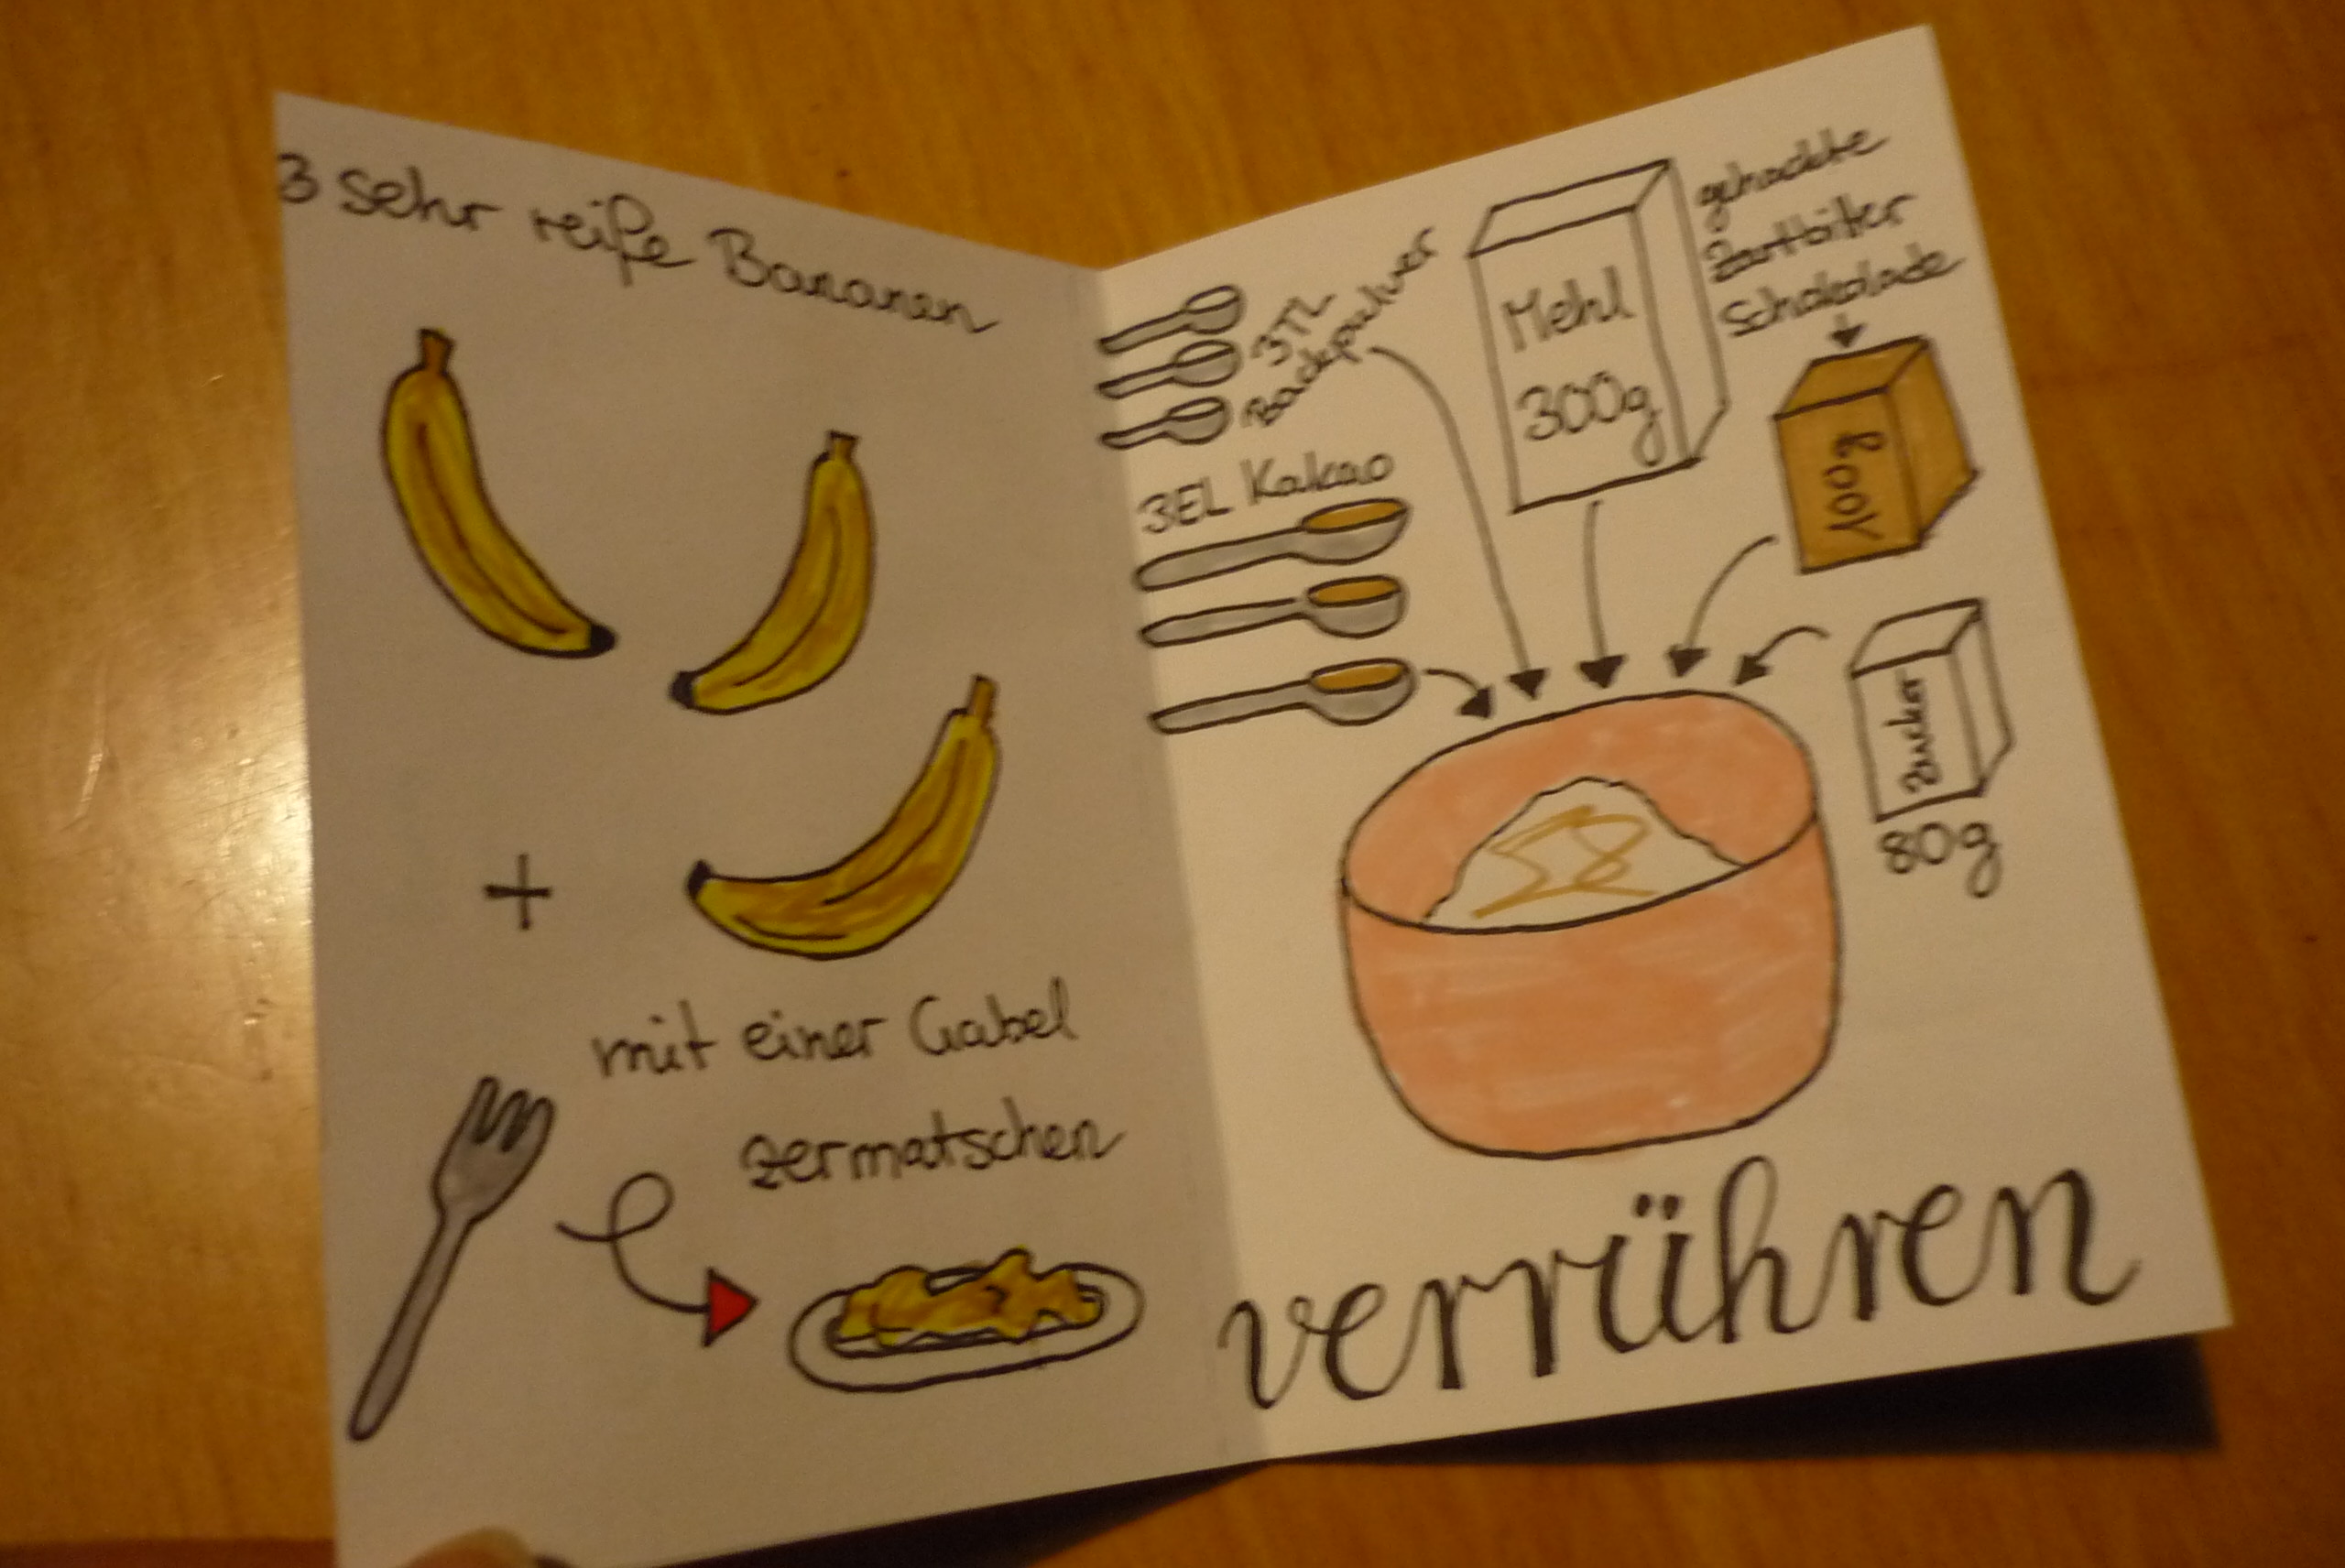 3 sehr reife Bananen
+
mit einer Gabel
zermatschen
3TL
Backpulver
3EL Kakao
Mehl
300g
gehackte
Zartbitter
Schokolade
100g
Zucker
80g
verrühren